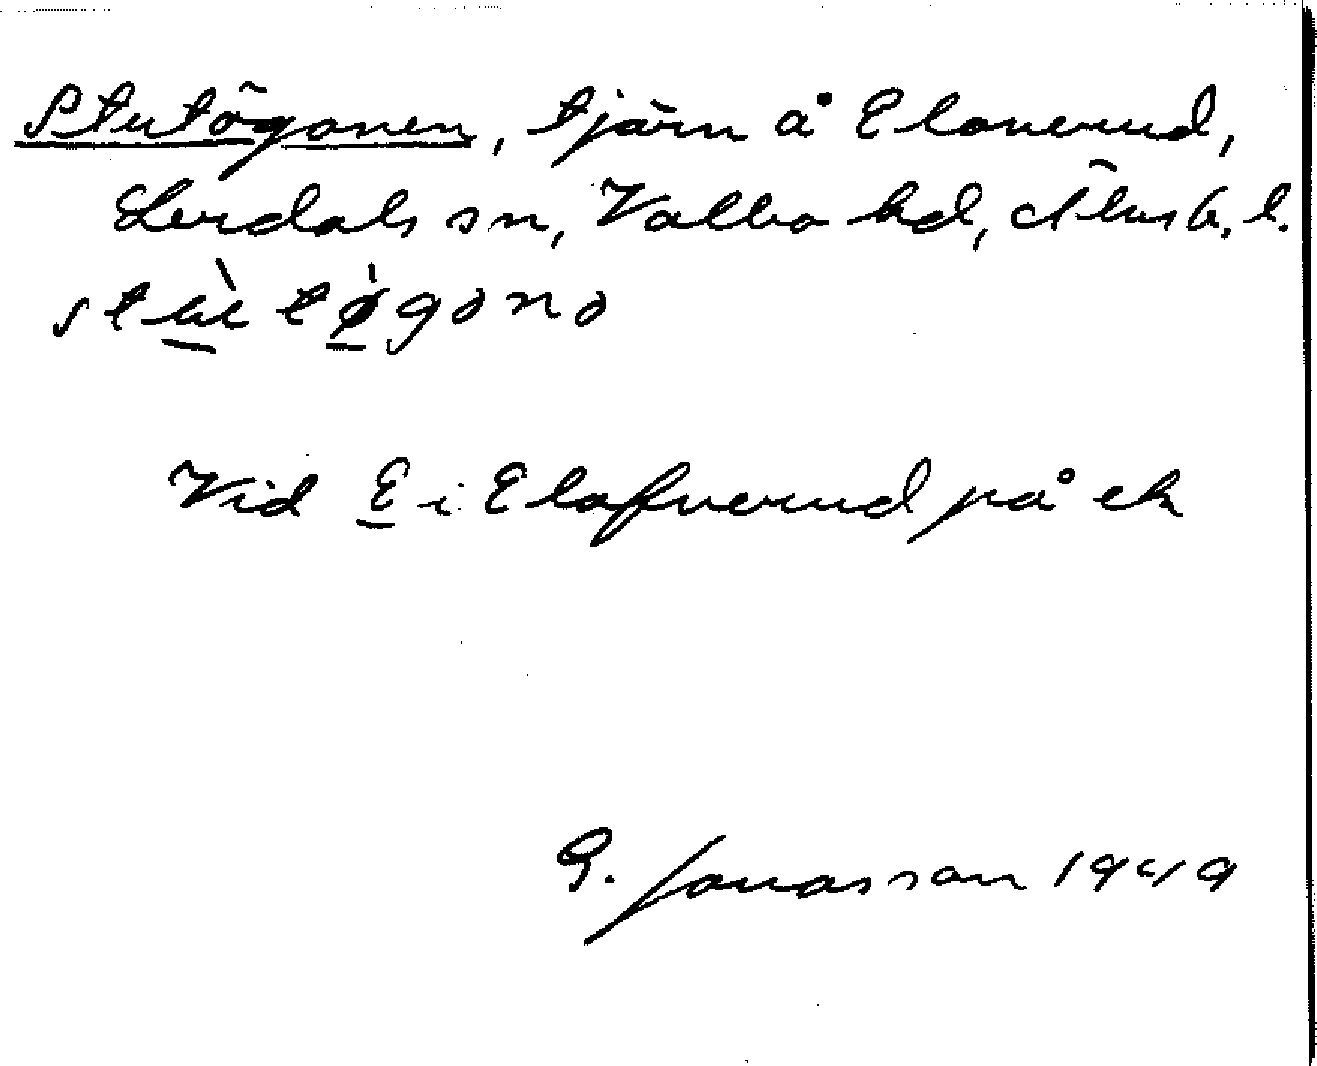 Stutögonen, tjärn å Eloverud,
Lerdals sn, Valbo hd, Älvsb. l.
Vid E i Elofverud på ek
G. Jonasson 1949